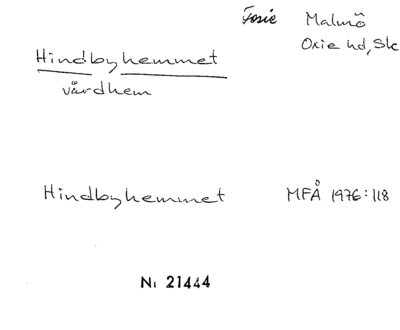 Fosie Malmö
Oxie hd, Sk
Hindbyhemmet
vårdhem
Hindbyhemmet MFÅ 1976:118
Nr 21444